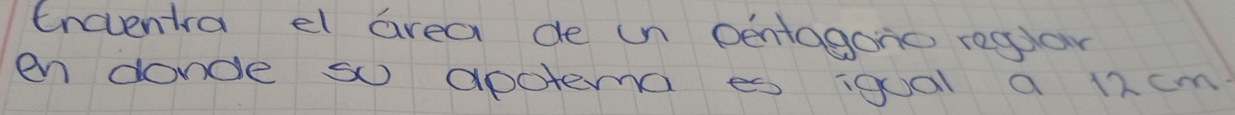 Encuentra el área de un péntagono regular
en donde su apotema es igual a 12 cm.